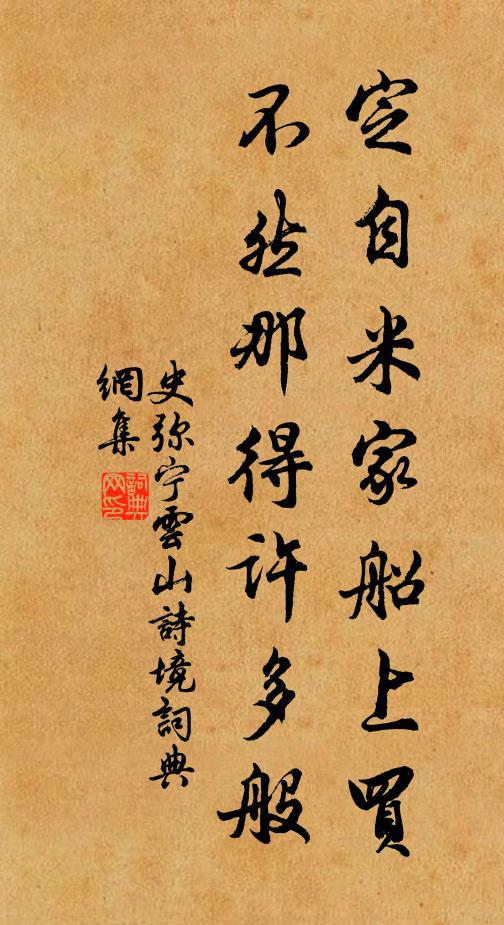 定自米家船上買
不然那得許多般
史弥宁雲山詩境詞典
網集
詞典
网印